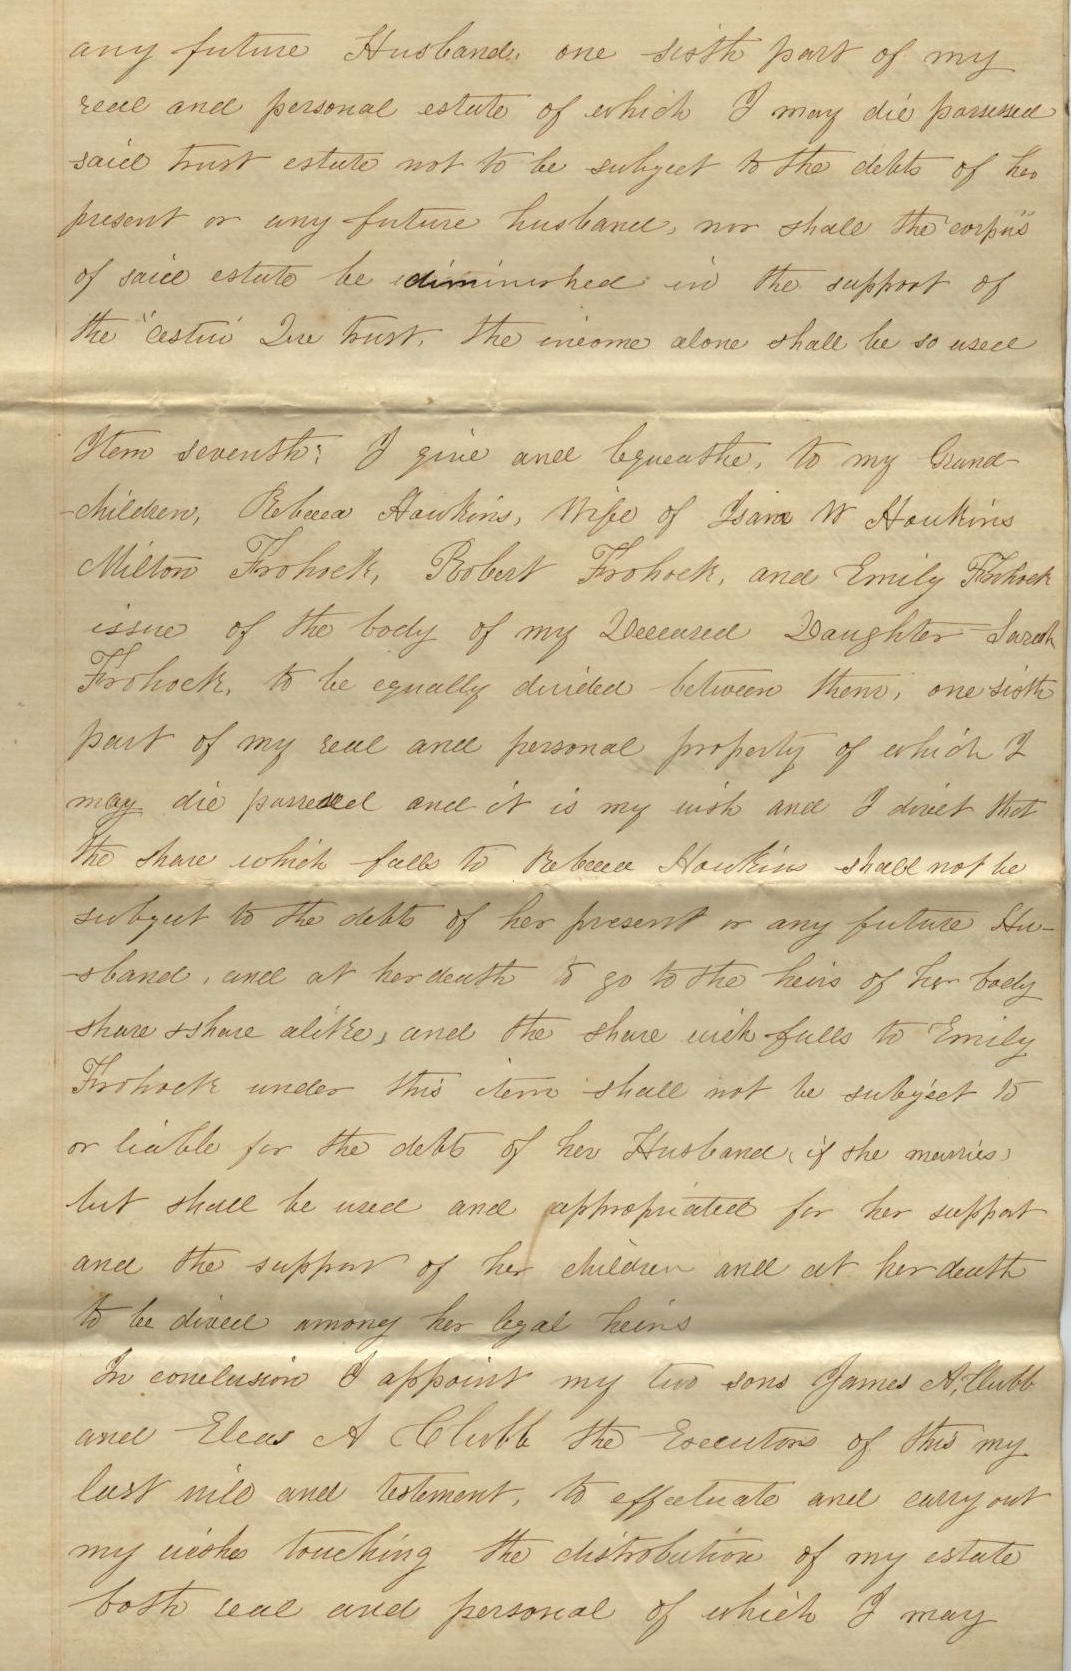 any future Husband, one sixth part of my
real and personal estate of which I may die possessed
said trust estate not to be subject to the debts of her
present or any future husband, nor shall the "corpus"
of said estate be diminished in the support of
the "cestui" Que trust, the income alone shall be so used
Item seventh: I give and bequeathe, to my Grand-
-children, Rebecca Hawkins, Wife of Isam W Hawkins
Milton Frohock, Robert Frohock, and Emily Frohock
issue of the body of my Deceased Daughter Sarah
Frohock, to be equally divided between them, one sixth
part of my real and personal property of which I
may die possessed and it is my wish and I direct that
the share which falls to Rebecca Hawkins shall not be
subject to the debts of her present or any future Hu-
-sband, and at her death to go to the heirs of her body
share & share alike, and the share wich falls to Emily
Frohock under this item shall not be subject to
or liable for the debts of her Husband, if she marries,
but shall be used and appropriated for her support
and the support of her children and at her death
to be divied among her legal heirs
In conclusion I appoint my two sons James A, Clubb
and Elcas A Clubb the Executors of this my
last will and testement, to effectuate and carry out
my wishes touching the distribution of my estate
both real and personal of which I may